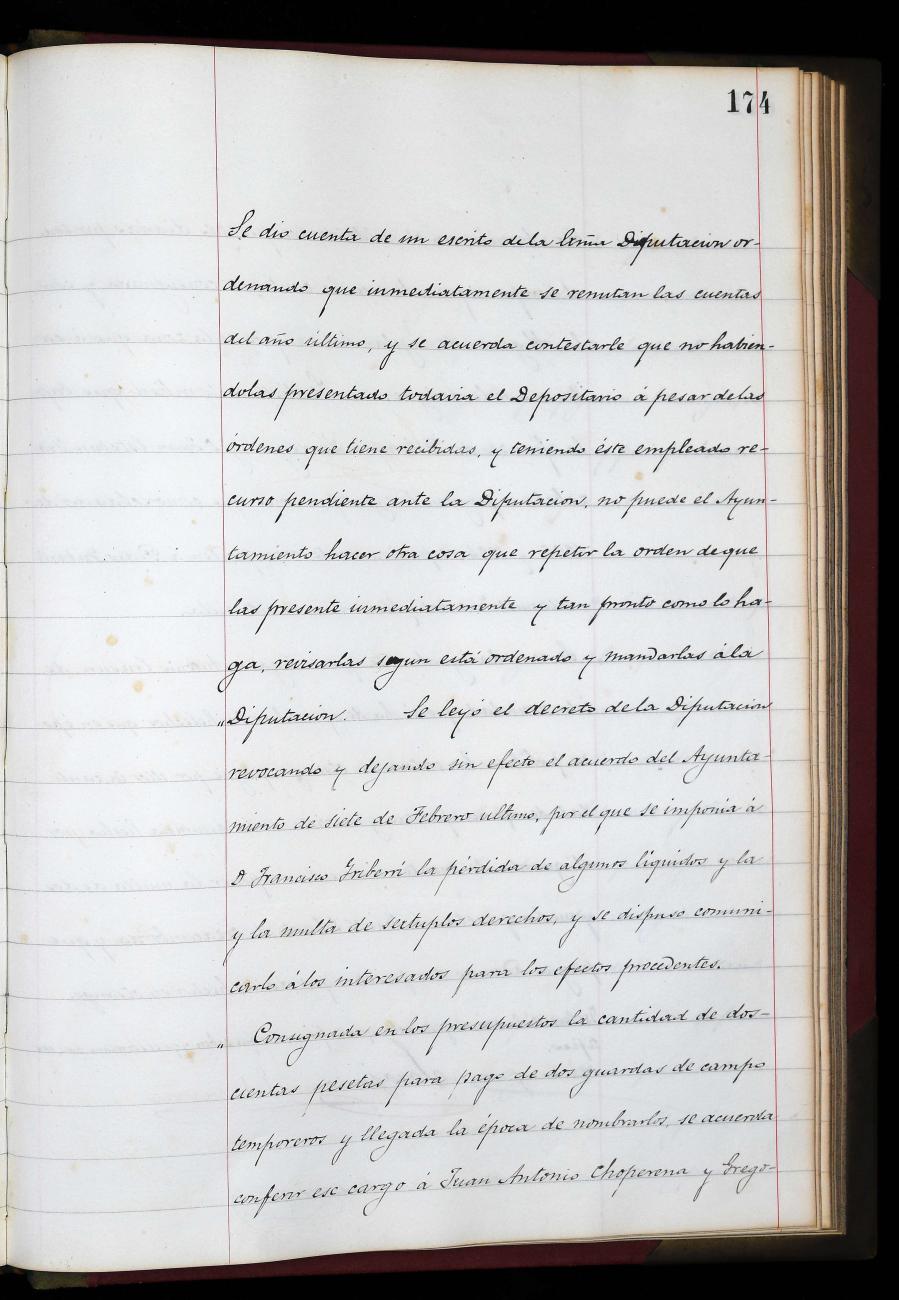 174
Se dio cuenta de un escrito dela Excma Diputacion or-
denando que inmediatamente se remitan las cuentas
del año último, y se acuerda contestarle que no habien-
dolas presentado todavia el Depositario á pesar de las
órdenes que tiene recibidas, y teniendo éste empleado re-
curso pendiente ante la Diputacion, no puede el Ayun-
tamiento hacer otra cosa que repetir la orden de que
las presente inmediatamente y tan pronto como lo ha-
ga, revisarlas segun está ordenado y mandarlas á la
" Diputacion. Se leyó el decreto de la Diputacion
revocando y dejando sin efecto el acuerdo del Ayunta-
miento de siete de Febrero ultimo, por el que se imponia á
D Francisco Iriberri la pérdida de algunos líquidos y la
y la multa de sextuplos derechos, y se dispuso comuni-
carlo á los interesados para los efectos procedentes.
" Consignada en los presupuestos la cantidad de dos-
cientas pesetas para pago de dos guardas de campo
temporeros y llegada la época de nombrarlos, se acuerda
conferir ese cargo á Juan Antonio Choperena y Grego-